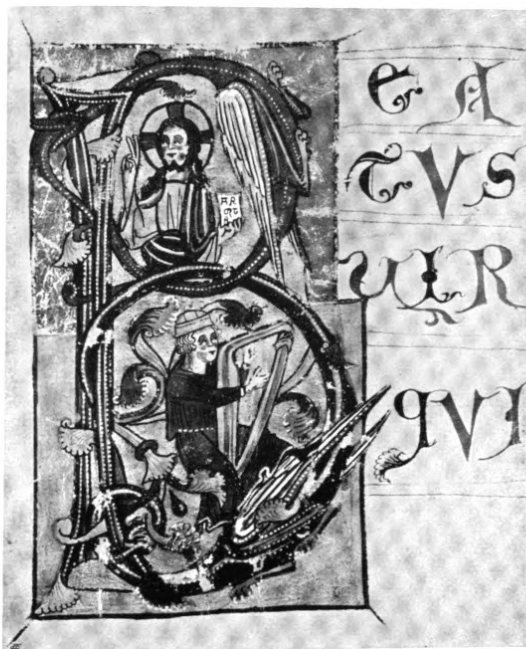 BEA
TVS
UIR
qVI